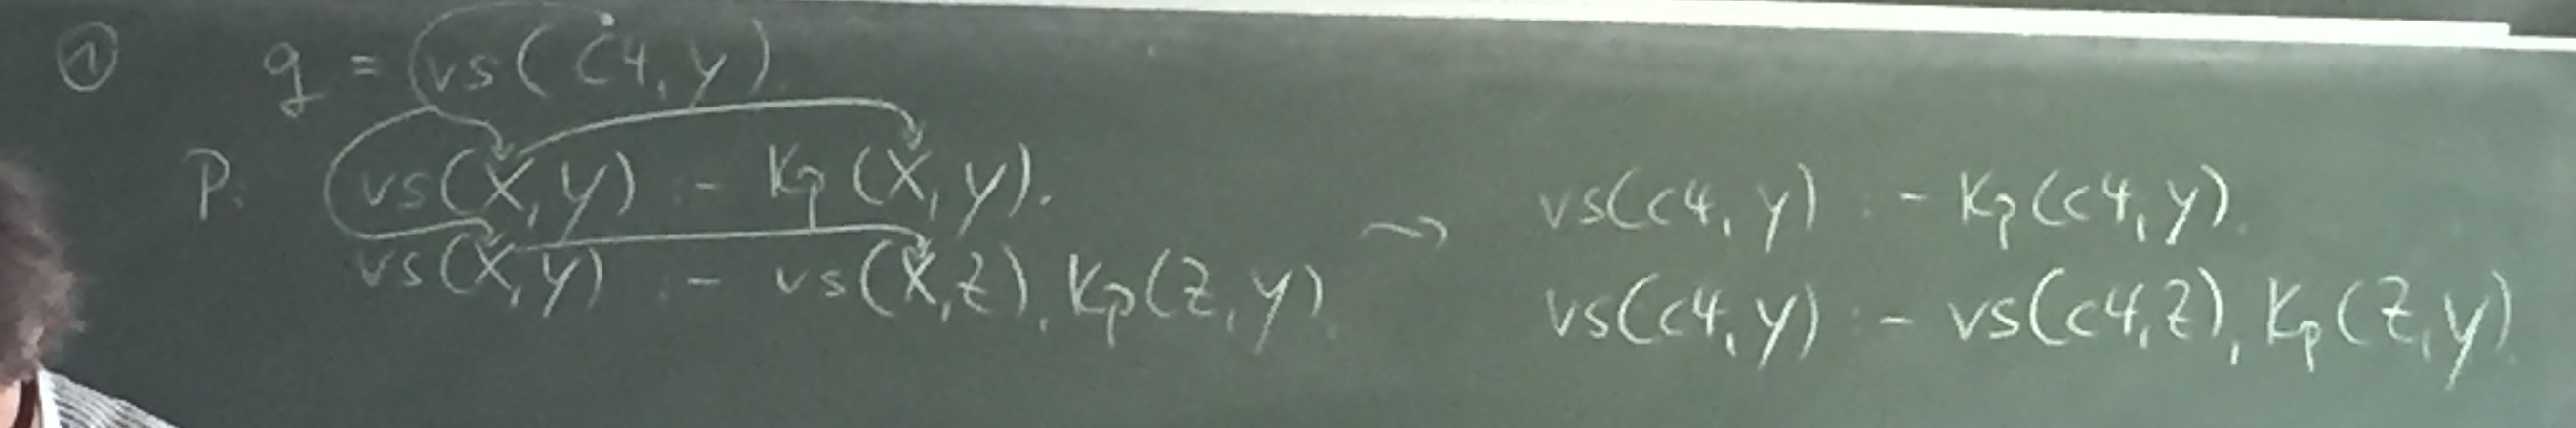 ① q = vs(c4, y).
P: vs(X, y) :- Kp(X, y).
vs(X, y) :- vs(X, z), Kp(z, y).
⤳ vs(c4, y) :- Kp(c4, y).
vs(c4, y) :- vs(c4, z), Kp(z, y).